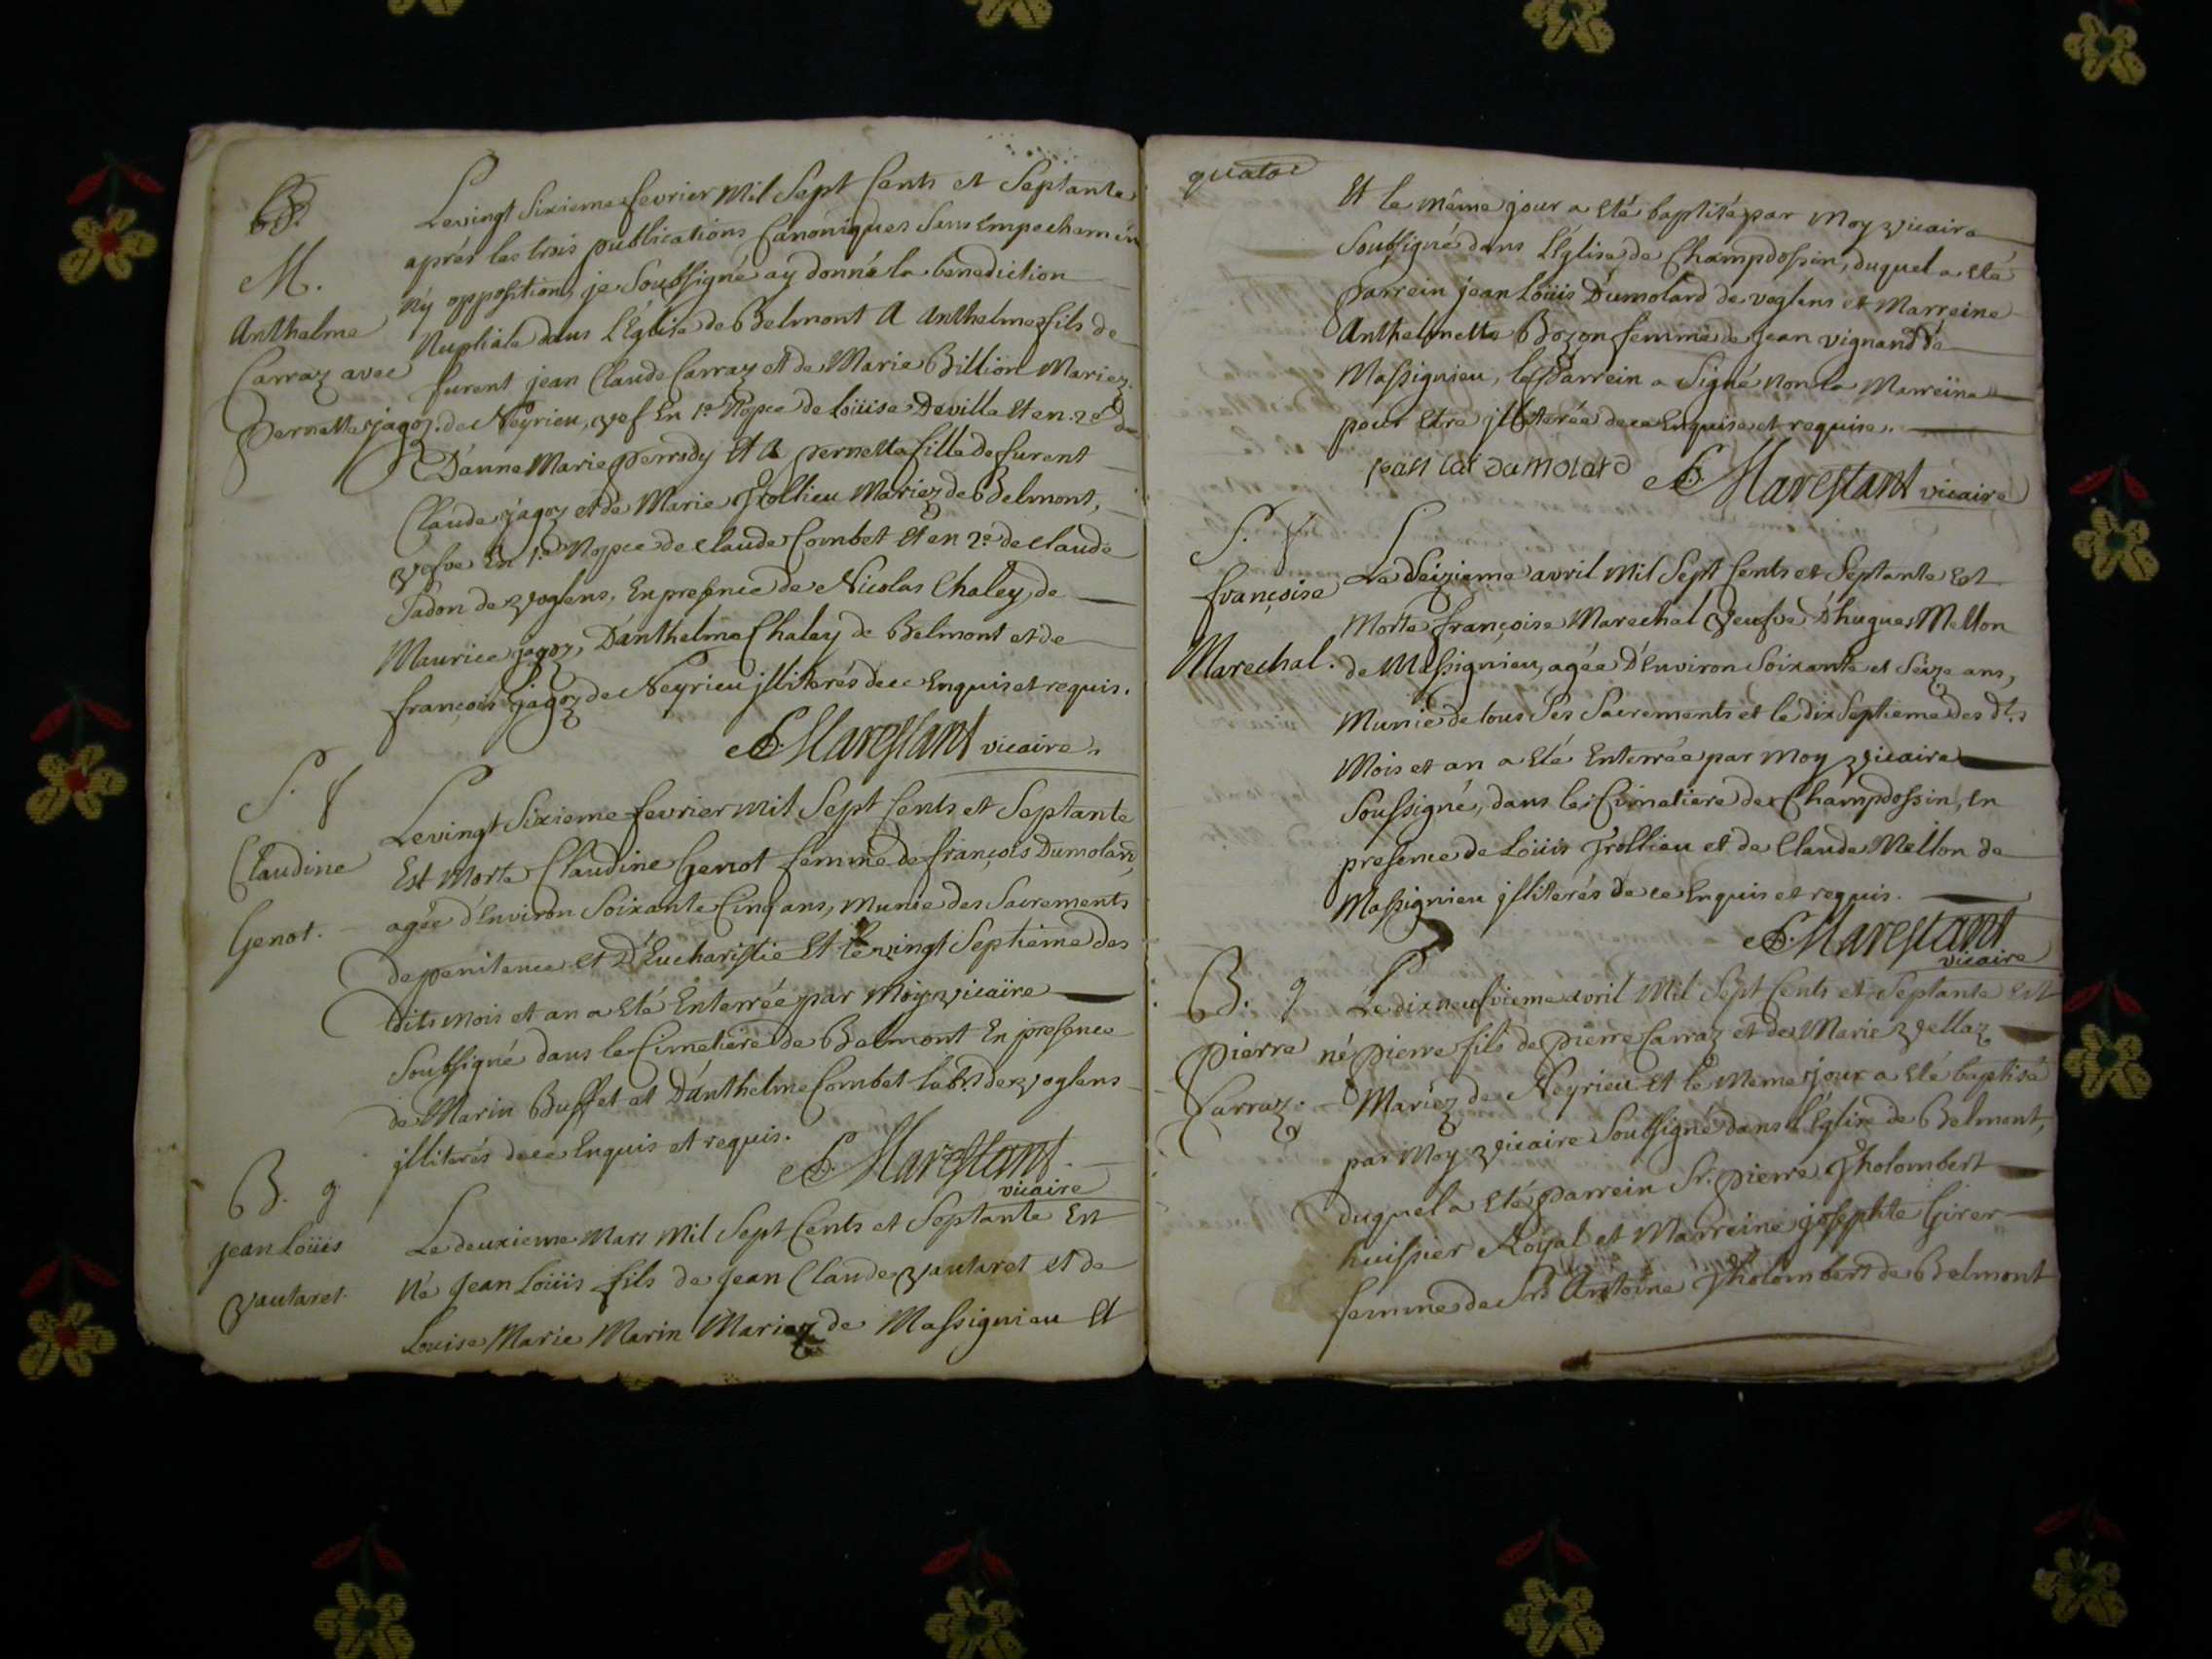 M.
Anthelme
Carraz avec
pernette jagoz.
Le vingt Sixieme fevrier Mil Sept Cents et Septante
aprés les trois publications Canoniques Sans Empechemen
ny opposition, je Soubsigné ay donné la benediction
Nuptiale dans l'Église de Belmont A Anthelme fils de
furent jean Claude Carraz et de Marie Billion Mariez
de Neyrieu, vef En 1e Nopce de Loüise Deville Et en 2e
D'anne Marie perrody Et A pernette fille de furent
Claude jagoz et de Marie Trollieu Mariez de Belmont,
vefve En 1e Nopce de Claude Combet Et en 2e de Claude
Jadon de voglens, En presence de Nicolas Chaley, de
Maurice jagoz, D'anthelme Chaley de Belmont et de
françois jagoz de Neyrieu jlliterés de ce Enquis et requis.
Marestant vicaire.
S. f
Claudine
Genot.
Le vingt Sixieme fevrier Mil Sept Cents et Septante
Est Morte Claudine Genot femme de françois Dumolard,
agée d'Environ Soixante Cinq ans, Munie des Sacrements
de penitence et D'Eucharistie Et le vingt Septieme des
dits Mois et an a Eté Enterrée par Moy vicaire
Soubsigné dans le Cimetiere de Belmont En presence
de Marin Buffet et D'anthelme Combet labrs de voglens
jlliterés de ce Enquis et requis.
Marestant
vicaire
B. g
jean Loüis
vautaret.
Le deuxieme Mars Mil Sept Cents et Septante Est
Né Jean Loüis fils de Jean Claude vautaret et de
Louise Marie Marin Mariez de Massignieu Et
quato
Et le même jour a Eté baptisé par Moy vicaire
Soubsigné dans l'Église de Champdossin, duquel a Eté
Parrein jean Loüis Dumolard de voglens et Marreine
Anthelmette Bozon femme de Jean vignand de
Massignieu, le Parrein a Signé Non la Marreine
pour Etre jlliterée de ce Enquise et requise.
Dumolard Marestant vicaire
S. f
françoise
Marechal.
Le Seizieme avril Mil Sept Cents et Septante Est
Morte françoise Marechal Veufve D'hugues Mellon
de Massignieu, agée D'Environ Soixante et Seize ans,
Munie de tous Ses Sacrements et le dix Septieme des dts
Mois et an a Eté Enterrée par Moy vicaire
Soussigné, dans le Cimetiere de Champdossin, En
presence de Loüis Trollieu et de Claude Mellon de
Massignieu jlliterés de ce Enquis et requis.
Marestant
vicaire
B. g
Pierre
Carraz.
Le dix neufvieme avril Mil Sept Cents et Septante Est
né pierre fils de pierre Carraz et de Marie vellaz
Mariez de Neyrieu Et le Meme jour a Eté baptisé
par Moy vicaire Soubsigné dans l'Église de Belmont,
duquel a Eté parrein Sr. pierre Tholombert
huissier Royal et Marreine josephte Girer
femme de Sr. Antoine Tholombert de Belmont